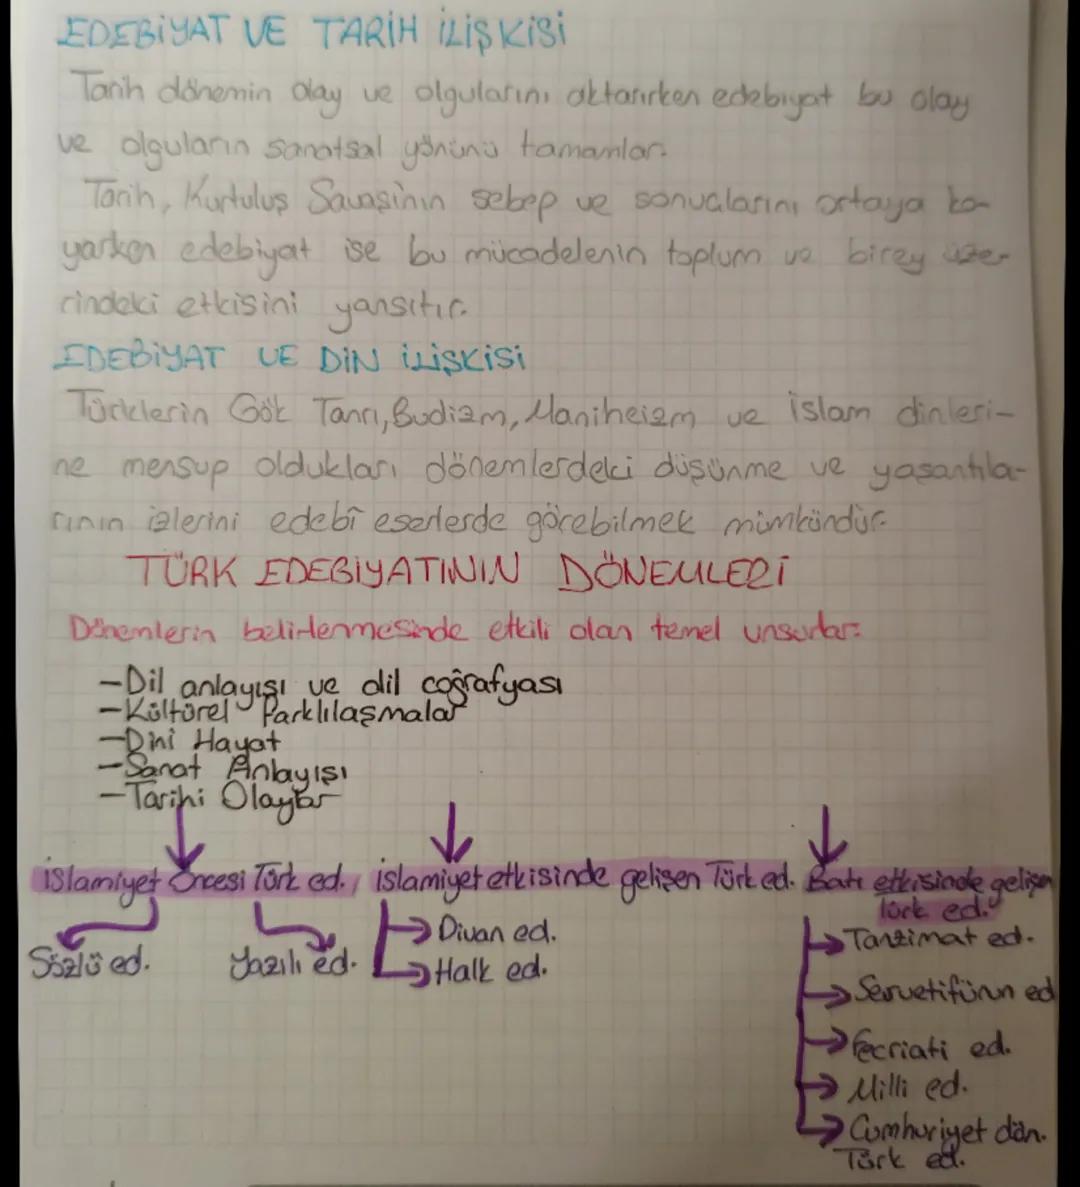 EDEBİYAT VE TARİH İLİŞKİSİ
Tarih dönemin olay ve olgularını aktarırken edebiyat bu olay
ve olguların sanatsal yönünü tamamlar.
Tarih, Kurtuluş Savaşı'nın sebep ve sonuçlarını ortaya ko-
yarken edebiyat ise bu mücadelenin toplum ve birey üze-
rindeki etkisini yansıtır.
EDEBİYAT VE DİN İLİŞKİSİ
Türklerin Gök Tanrı, Budizm, Maniheizm ve İslam dinleri-
ne mensup oldukları dönemlerdeki düşünme ve yaşantıla-
rının izlerini edebî eserlerde görebilmek mümkündür.
TÜRK EDEBİYATININ DÖNEMLERİ
Dönemlerin belirlenmesinde etkili olan temel unsurlar:
-Dil anlayışı ve dil coğrafyası
-Kültürel Farklılaşmalar
-Dini Hayat
-Sanat Anlayışı
-Tarihi Olaylar
İslamiyet Öncesi Türk ed., İslamiyet etkisinde gelişen Türk ed. Batı etkisinde gelişen
Türk ed.
Sözlü ed. Yazılı ed.
Divan ed.
Halk ed.
Tanzimat ed.
Servetifünun ed
Fecriati ed.
Milli ed.
Cumhuriyet dön.
Türk ed.